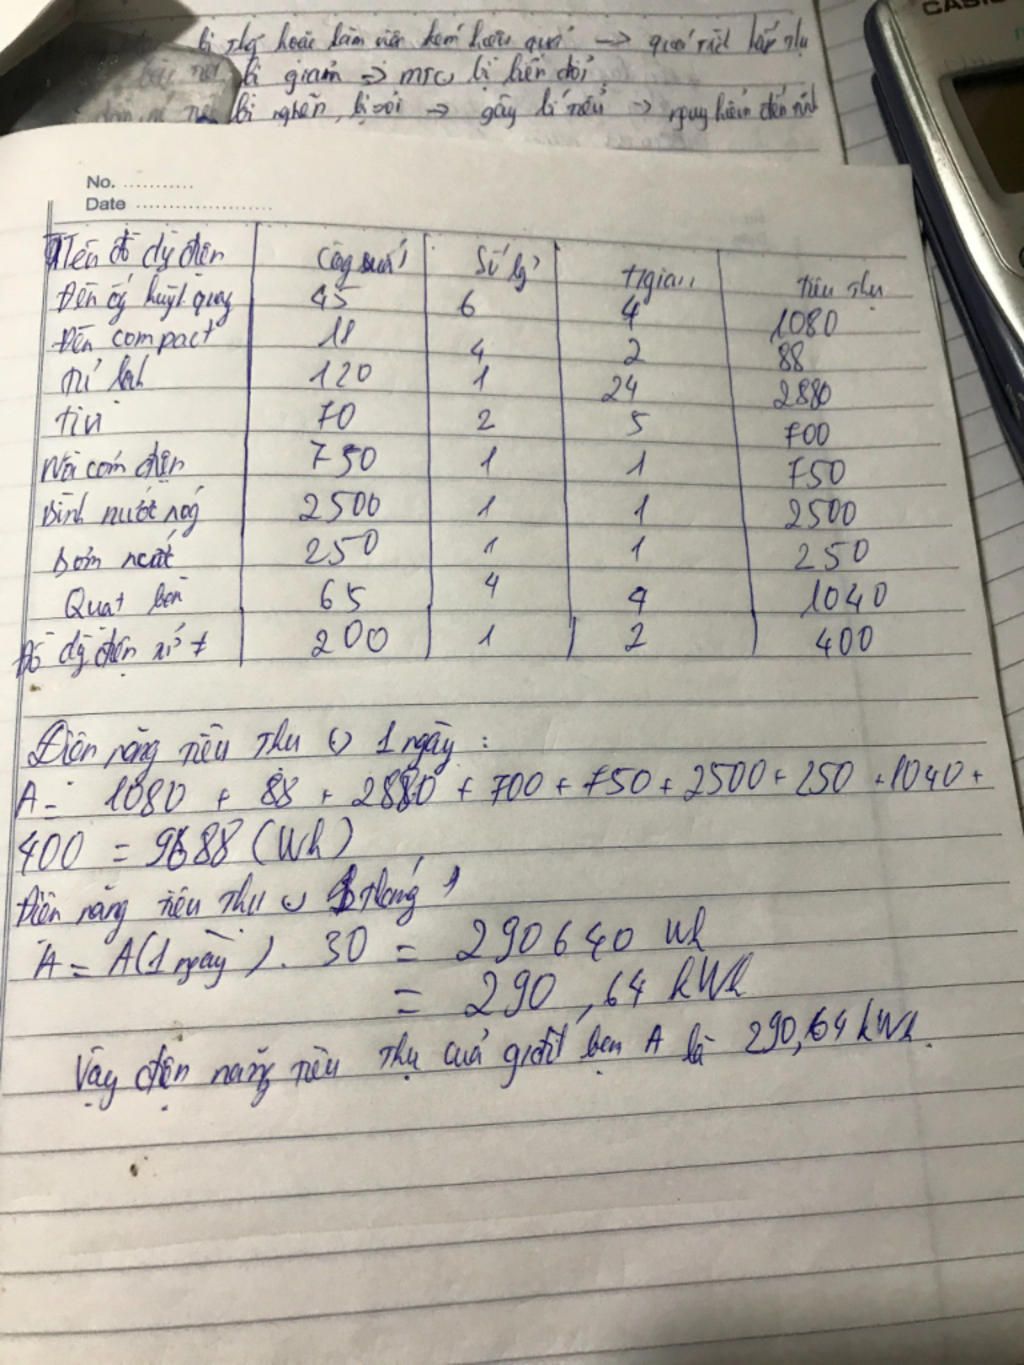 CASIO
bị hoặc làm việc kém hiệu quả → quá trình hấp thụ
bị giảm → bị biến đổi
bị nghẽn, bị sỏi → gây bí tiểu → nguy hiểm đến
No. ............
Date ........................
Tên đồ dg điện Công suất Số lg t/gian tiêu thụ
Đèn ống huỳnh quang 45 6 4 1080
Đèn compact 11 4 2 88
Tủ lạnh 120 1 24 2880
Tivi 70 2 5 700
Nồi cơm điện 750 1 1 750
Bình nước nóng 2500 1 1 2500
Bơm nước 250 1 1 250
Quạt bàn 65 4 4 1040
Đồ dg điện ≠ 200 1 2 400
Điện năng tiêu thụ 1 ngày :
A = 1080 + 88 + 2880 + 700 + 750 + 2500 + 250 + 1040 +
400 = 9688 (Wh)
Điện năng tiêu thụ tháng
A = A(1 ngày) . 30 = 290640 Wh
= 290,64 kWh
Vậy điện năng tiêu thụ của gđ bạn A là 290,64 kWh.